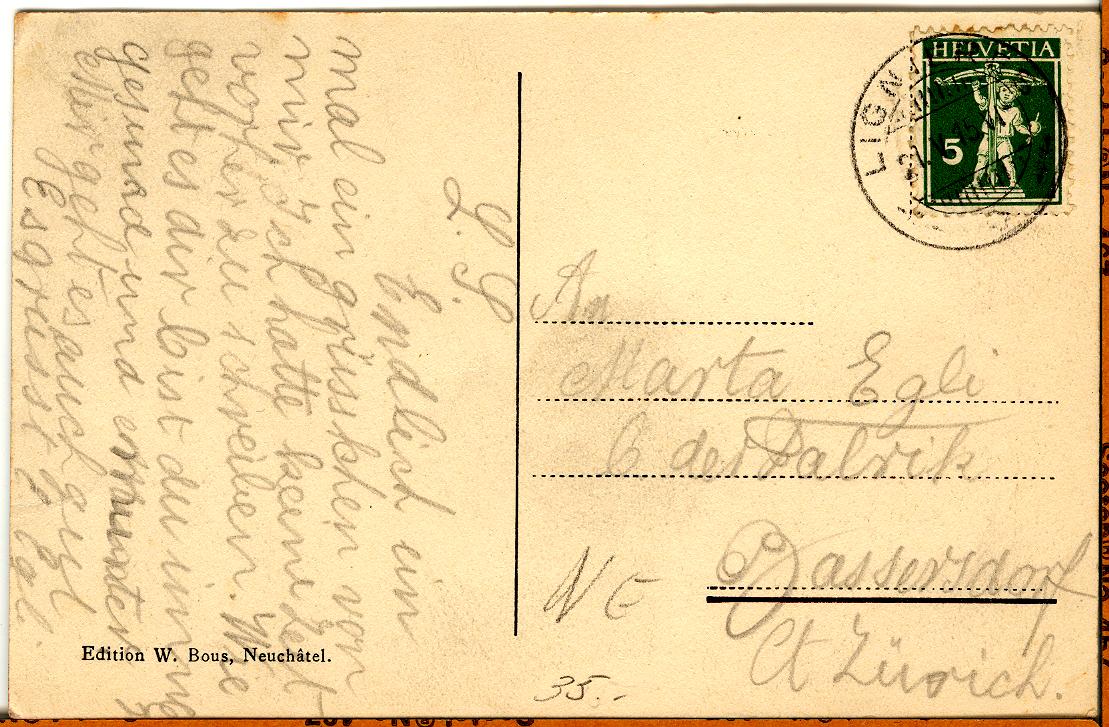 L. S.
Endlich ein
mal ein grüsschen von
mir. Ich hatte keine Zeit
vorher zu schreiben. Wie
geht es dir bist du immer
gesund und munter
Mir geht es auch
Es grüsst Egl.
Edition W. Bous, Neuchâtel.
HELVETIA
5
LIGN
An
Marta Egli
der
Bassersdorf
Ct Zürich.
NE
35.-